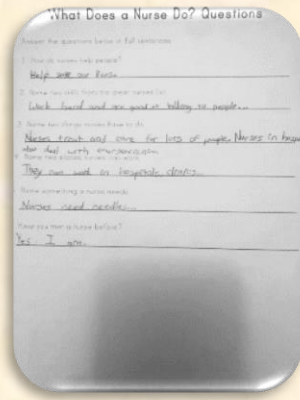 What Does a Nurse Do? Questions
Answer the questions below in full sentences.
1. How do nurses help people?
Help our
2. Name two skills from the
Work hard and are good at talking to people.
3. Name two things nurses have to do.
Nurses treat and care for lots of people. Nurses in
also deal with
Name two places nurses can work.
They can work in hospitals,
Name something a nurse needs.
Nurses need needles.
Have you met a nurse before?
Yes I